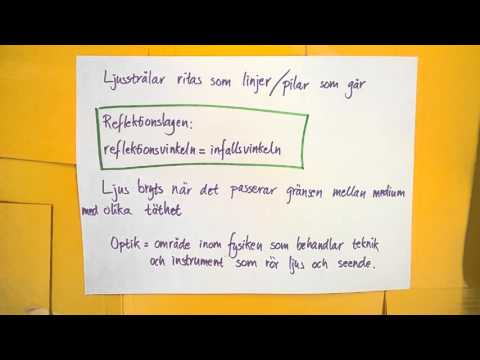 Ljusstrålar ritas som linjer/pilar som går
Reflektionslagen:
reflektionsvinkeln = infallsvinkeln
Ljus bryts när det passerar gränsen mellan medium
med olika täthet
Optik = område inom fysiken som behandlar teknik
och instrument som rör ljus och seende.